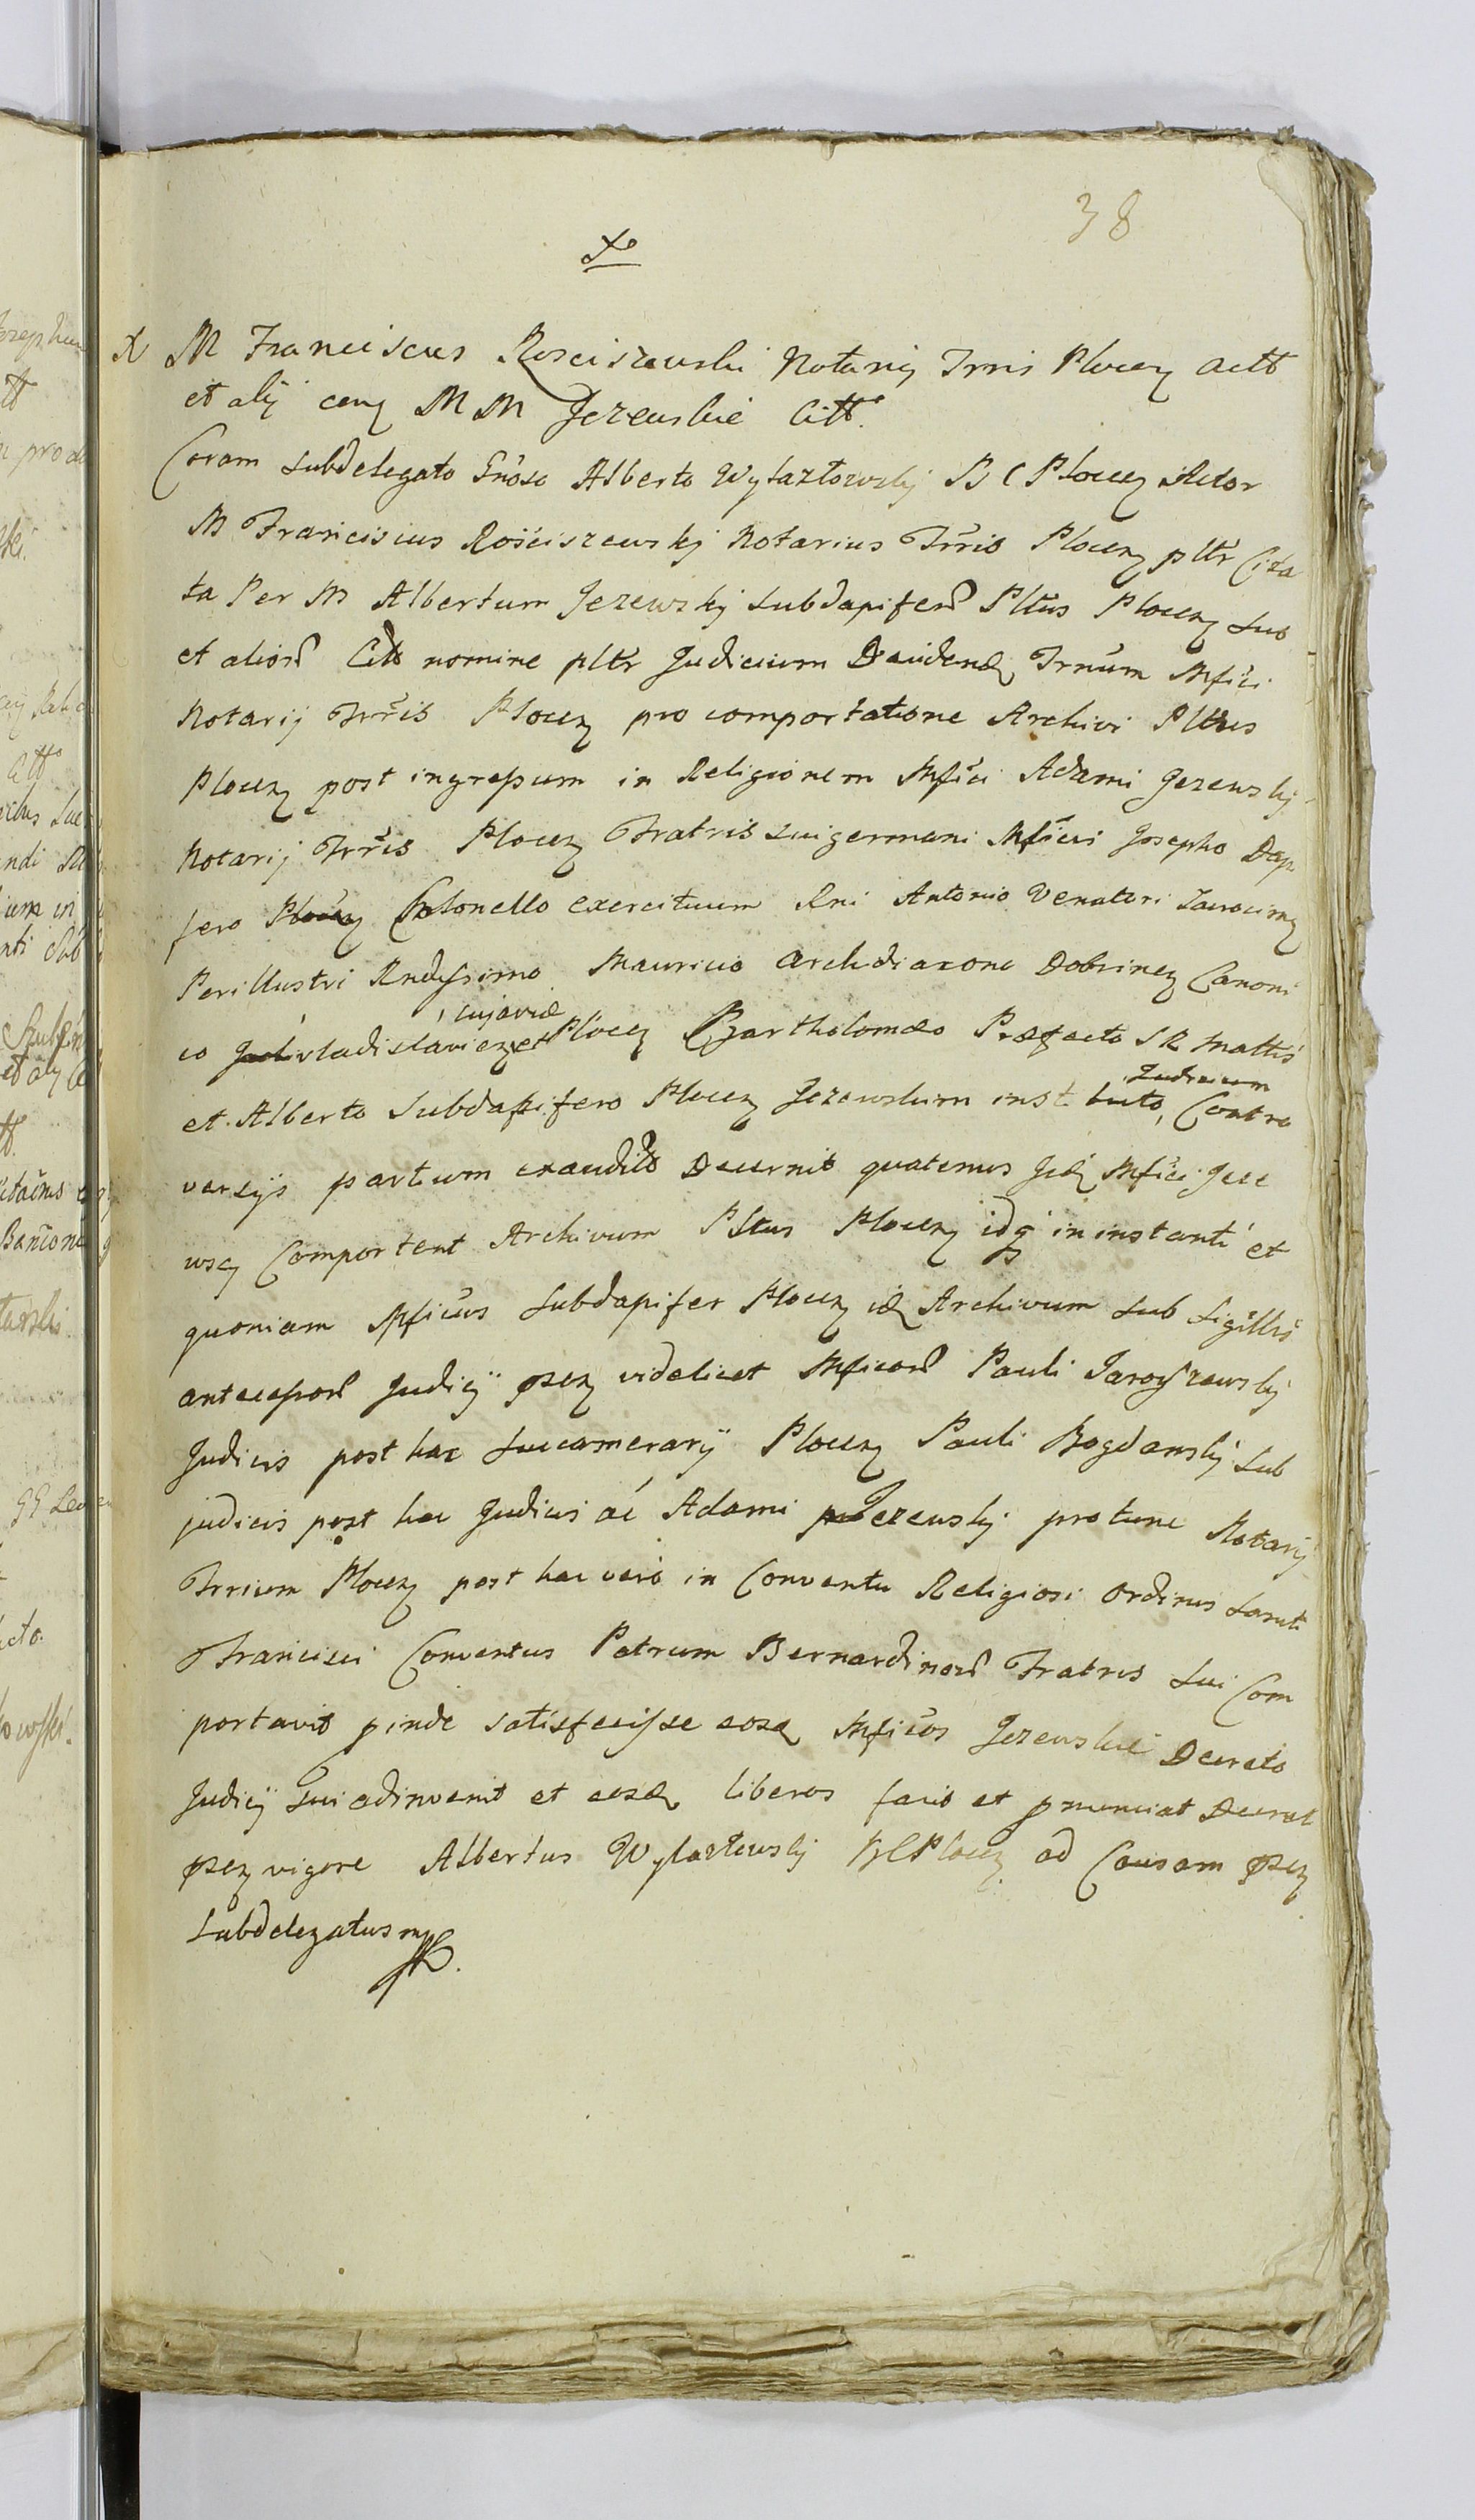 38
X
M Franciscus Rosciszewski Notarij Trris Plocen Actt
et alij cum MM Jezewskie Citt.
Coram subdelegato Gnoso Alberto Wylaztowskj B C Plocen Actor
M Franciscus Rościszewskj Notarius Trris Plocen pltr Cita
ta Per M Albertum Jezewskj Subdapiferu Pltus Plocen suo
et alioru Citt nomine pltr Judicium Dividend Trrium Mfici
Notarij Trris Plocen pro comportatione Archivi Pltus
Plocen post ingressum in Religionem Mfici Adami Jezewskj
Notarij Trris Plocen Fratris sui germani Mficis Josepho Dapi
fero Plocen Colonello exercituum Rni Antonio Venatori Zawocimen
Perillustri Rndissimo Mauricio Archidiacono Dobrinen Canoni
cujaviæ
co Vladislavien et Plocen Bartholomæo Præfecto S R Mattis
Judicium
et Alberto Subdapifero Plocen Jezewskim instituto, Contro
versijs partium exauditis Decernit quatenus Jid Mfici Jeze
wscy Comportent Archivum Pltus Plocen idq in instanti et
quoniam Mficus Subdapifer Plocen id Archivum sub Sigillis
antecessoru Judicij psen videlicet Mficoru Pauli Jaroszewskj
Judicis post hac Succamerarij Plocen Pauli Bogdanskj Sub
judicis post hac Judicis ac Adami Jezewskj protunc Notarij
Trrium Plocen post hac vero in Conventu Religiosi Ordinis Sancti
Francisci Conventus Patrum Bernardinoru Fratris sui Com
portavit pinde satisfecisse eosd Mficos Jezewskie Decreto
Judicij Sui adinvenit et eosd liberos facit et pnunciat Decret
psen vigore Albertus Wylaztowskj B C Plocen ad Causam psen
Subdelegatus mp